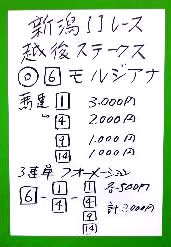 新潟11レース
越後ステークス
◎ 6 モルジアナ
馬連 1 3.000円
〃 4 2.000円
9 1.000円
14 1.000円
3連単 フォーメーション
6-1 4-1 4 9 14 各500円
計3.000円